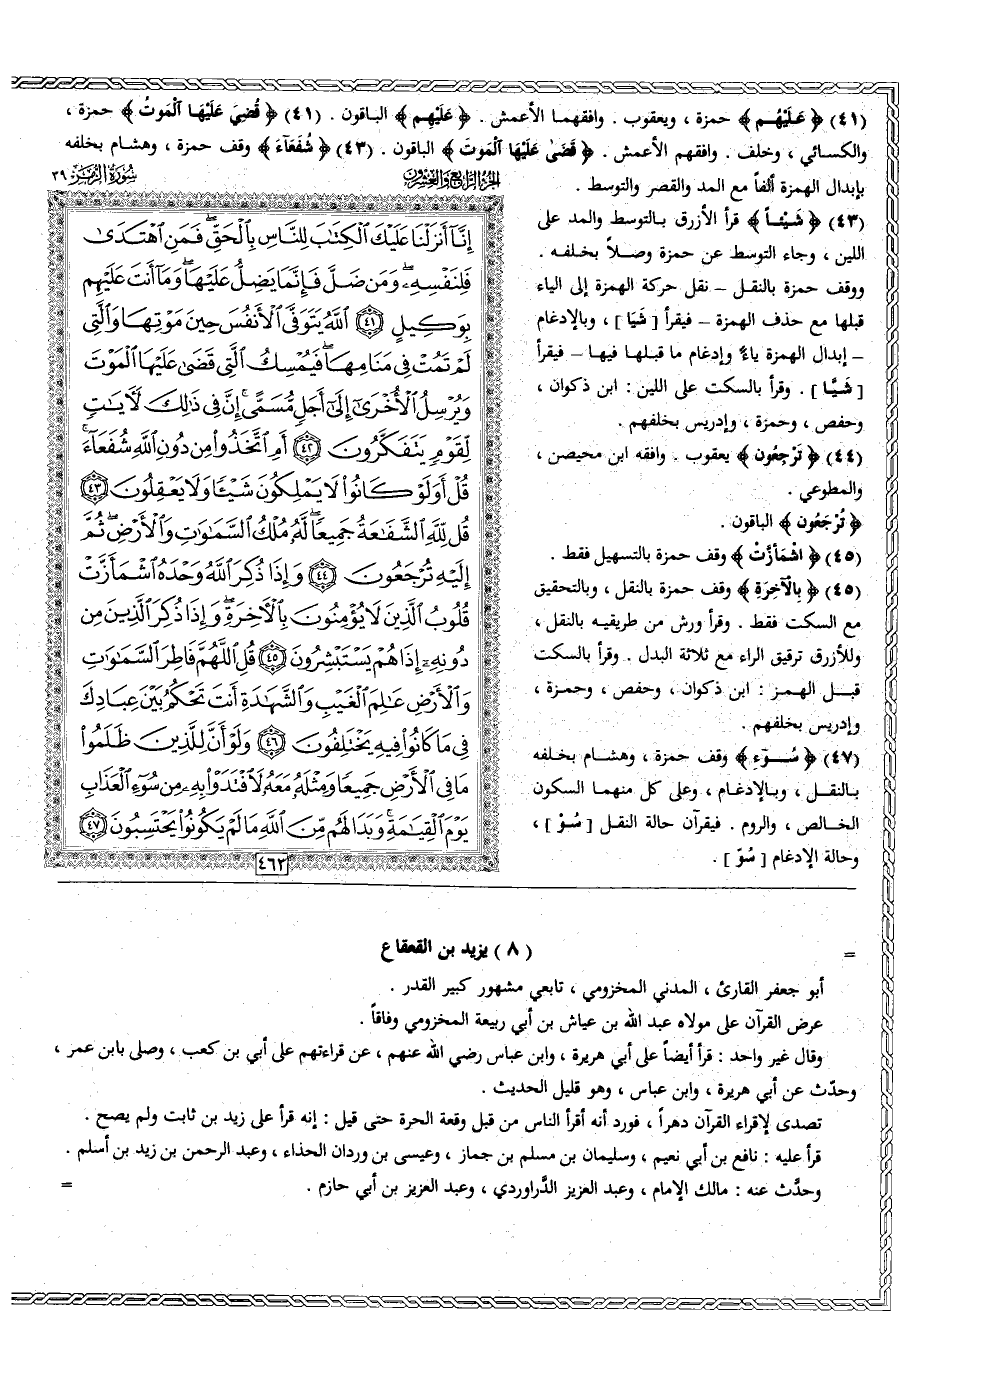 (٤١) ﴿ عَلَيْهُم ﴾ حمزة ، ويعقوب . وافقهما الأعمش . ﴿ عَلَيْهِم ﴾ الباقون . (٤١) ﴿ قُضِيَ عَلَيْهَا الْمَوتُ ﴾ حمزة ،
والكسائي ، وخلف . وافقهم الأعمش . ﴿ قَضَىٰ عَلَيْهَا الْمَوتَ ﴾ الباقون . (٤٣) ﴿ شُفَعَآءَ ﴾ وقف حمزة ، وهشام بخلفه
بإبدال الهمزة ألفاً مع المد والقصر والتوسط .
(٤٣) ﴿ شَيْئاً ﴾ قرأ الأزرق بالتوسط والمد على
اللين ، وجاء التوسط عن حمزة وصلاً بخلفه .
ووقف حمزة بالنقل – نقل حركة الهمزة إلى الياء
قبلها مع حذف الهمزة – فيقرأ [ شَيَا ] ، وبالإدغام
– إبدال الهمزة ياءً وإدغام ما قبلها فيها – فيقرأ
[ شَيَّا ] . وقرأ بالسكت على اللين : ابن ذكوان ،
وحفص ، وحمزة ، وإدريس بخلفهم .
(٤٤) ﴿ تَرْجِعُون ﴾ يعقوب . وافقه ابن محيصن ،
والمطوعي .
﴿ تُرْجَعُون ﴾ الباقون .
(٤٥) ﴿ اشْمَأَزَّتْ ﴾ وقف حمزة بالتسهيل فقط .
(٤٥) ﴿ بِالْآخِرَةِ ﴾ وقف حمزة بالنقل ، وبالتحقيق
مع السكت فقط . وقرأ ورش من طريقيه بالنقل ،
وللأزرق ترقيق الراء مع ثلاثة البدل . وقرأ بالسكت
قبل الهمز : ابن ذكوان ، وحفص ، وحمزة ،
وإدريس بخلفهم .
(٤٧) ﴿ سُوٓء ﴾ وقف حمزة ، وهشام بخلفه
بالنقل ، وبالإدغام ، وعلى كل منهما السكون
الخالص ، والروم . فيقرآن حالة النقل [ سُوْ ] ،
وحالة الإدغام [ سُوّ ] .
الجزء الرابع والعشرون
سورة الزمر ٣٩
إِنَّآ أَنزَلْنَا عَلَيْكَ ٱلْكِتَٰبَ لِلنَّاسِ بِٱلْحَقِّ ۖ فَمَنِ ٱهْتَدَىٰ
فَلِنَفْسِهِۦ ۖ وَمَن ضَلَّ فَإِنَّمَا يَضِلُّ عَلَيْهَا ۖ وَمَآ أَنتَ عَلَيْهِم
بِوَكِيلٍ ٤١ ٱللَّهُ يَتَوَفَّى ٱلْأَنفُسَ حِينَ مَوْتِهَا وَٱلَّتِى
لَمْ تَمُتْ فِى مَنَامِهَا ۖ فَيُمْسِكُ ٱلَّتِى قَضَىٰ عَلَيْهَا ٱلْمَوْتَ
وَيُرْسِلُ ٱلْأُخْرَىٰٓ إِلَىٰٓ أَجَلٍ مُّسَمًّى ۚ إِنَّ فِى ذَٰلِكَ لَءَايَٰتٍ
لِّقَوْمٍ يَتَفَكَّرُونَ ٤٢ أَمِ ٱتَّخَذُوا۟ مِن دُونِ ٱللَّهِ شُفَعَآءَ ۚ
قُلْ أَوَلَوْ كَانُوا۟ لَا يَمْلِكُونَ شَيْـًٔا وَلَا يَعْقِلُونَ ٤٣
قُل لِّلَّهِ ٱلشَّفَٰعَةُ جَمِيعًا ۖ لَّهُۥ مُلْكُ ٱلسَّمَٰوَٰتِ وَٱلْأَرْضِ ۖ ثُمَّ
إِلَيْهِ تُرْجَعُونَ ٤٤ وَإِذَا ذُكِرَ ٱللَّهُ وَحْدَهُ ٱشْمَأَزَّتْ
قُلُوبُ ٱلَّذِينَ لَا يُؤْمِنُونَ بِٱلْءَاخِرَةِ ۖ وَإِذَا ذُكِرَ ٱلَّذِينَ مِن
دُونِهِۦٓ إِذَا هُمْ يَسْتَبْشِرُونَ ٤٥ قُلِ ٱللَّهُمَّ فَاطِرَ ٱلسَّمَٰوَٰتِ
وَٱلْأَرْضِ عَٰلِمَ ٱلْغَيْبِ وَٱلشَّهَٰدَةِ أَنتَ تَحْكُمُ بَيْنَ عِبَادِكَ
فِى مَا كَانُوا۟ فِيهِ يَخْتَلِفُونَ ٤٦ وَلَوْ أَنَّ لِلَّذِينَ ظَلَمُوا۟
مَا فِى ٱلْأَرْضِ جَمِيعًا وَمِثْلَهُۥ مَعَهُۥ لَٱفْتَدَوْا۟ بِهِۦ مِن سُوٓءِ ٱلْعَذَابِ
يَوْمَ ٱلْقِيَٰمَةِ ۚ وَبَدَا لَهُم مِّنَ ٱللَّهِ مَا لَمْ يَكُونُوا۟ يَحْتَسِبُونَ ٤٧
٤٦٣
= (٨) يزيد بن القعقاع
أبو جعفر القارئ ، المدني المخزومي ، تابعي مشهور كبير القدر .
عرض القرآن على مولاه عبد الله بن عياش بن أبي ربيعة المخزومي وفاقاً .
وقال غير واحد : قرأ أيضاً على أبي هريرة ، وابن عباس رضي الله عنهم ، عن قراءتهم على أبي بن كعب ، وصلى بابن عمر ،
وحدّث عن أبي هريرة ، وابن عباس ، وهو قليل الحديث .
تصدى لإقراء القرآن دهراً ، فورد أنه أقرأ الناس من قبل وقعة الحرة حتى قيل : إنه قرأ على زيد بن ثابت ولم يصح .
قرأ عليه : نافع بن أبي نعيم ، وسليمان بن مسلم بن جماز ، وعيسى بن وردان الحذاء ، وعبد الرحمن بن زيد بن أسلم .
وحدَّث عنه : مالك الإمام ، وعبد العزيز الدَّراوردي ، وعبد العزيز بن أبي حازم . =